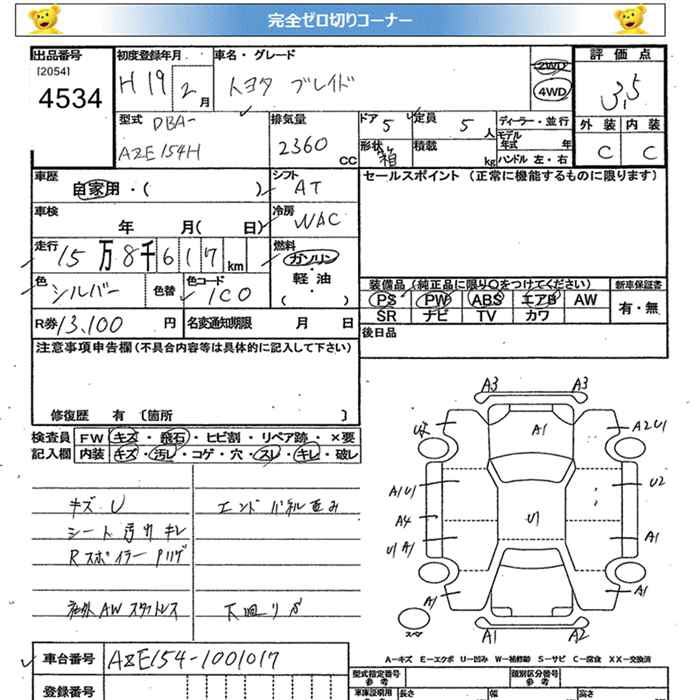 完全ゼロ切りコーナー
出品番号 初度登録年月 車名・グレード 評価点
[2054]
4534 H19 2月 トヨタ ブレイド 2WD 4WD 3.5
型式 排気量 ドア 5 定員 5人 ディーラー・並行 外装 内装
DBA- モデル年式 年
AZE154H 2360cc 形状 箱 積載 kg ハンドル 左・右 C C
車歴 シフト セールスポイント (正常に機能するものに限ります)
自家用・( ) AT
車検 冷房
年 月( 日) WAC
走行 15万8千617km 燃料 ガソリン・軽油・( )
色 シルバー 色替 色コード 1C0 装備品(純正品に限り○をつけてください) 新車保証書
PS PW ABS エアB AW 有・無
R券 13,100円 名変通知期限 月 日 SR ナビ TV カワ
注意事項申告欄(不具合内容等は具体的に記入して下さい) 後日品
修復歴 有〔箇所 〕
検査員 FW キズ・飛石・ヒビ割・リペア跡・×要
記入欄 内装 キズ・汚レ・コゲ・穴・スレ・キレ・破レ
A3 A3
A1 A2U1
A1U1 U2
A4 U1
U1A1 A1
A1 A1
スペア A1 A2
キズ U エンドパネル歪み
シート汚れ キレ
Rスポイラー
社外AW スタットレス 下廻りサビ
A−キズ E−エクボ U−凹み W−補修跡 S−サビ C−腐食 XX−交換済
車台番号 AZE154-1001017 型式指定番号 参考 類別区分番号 参考
登録番号 車庫証明用 参考 長さ 幅 高さ